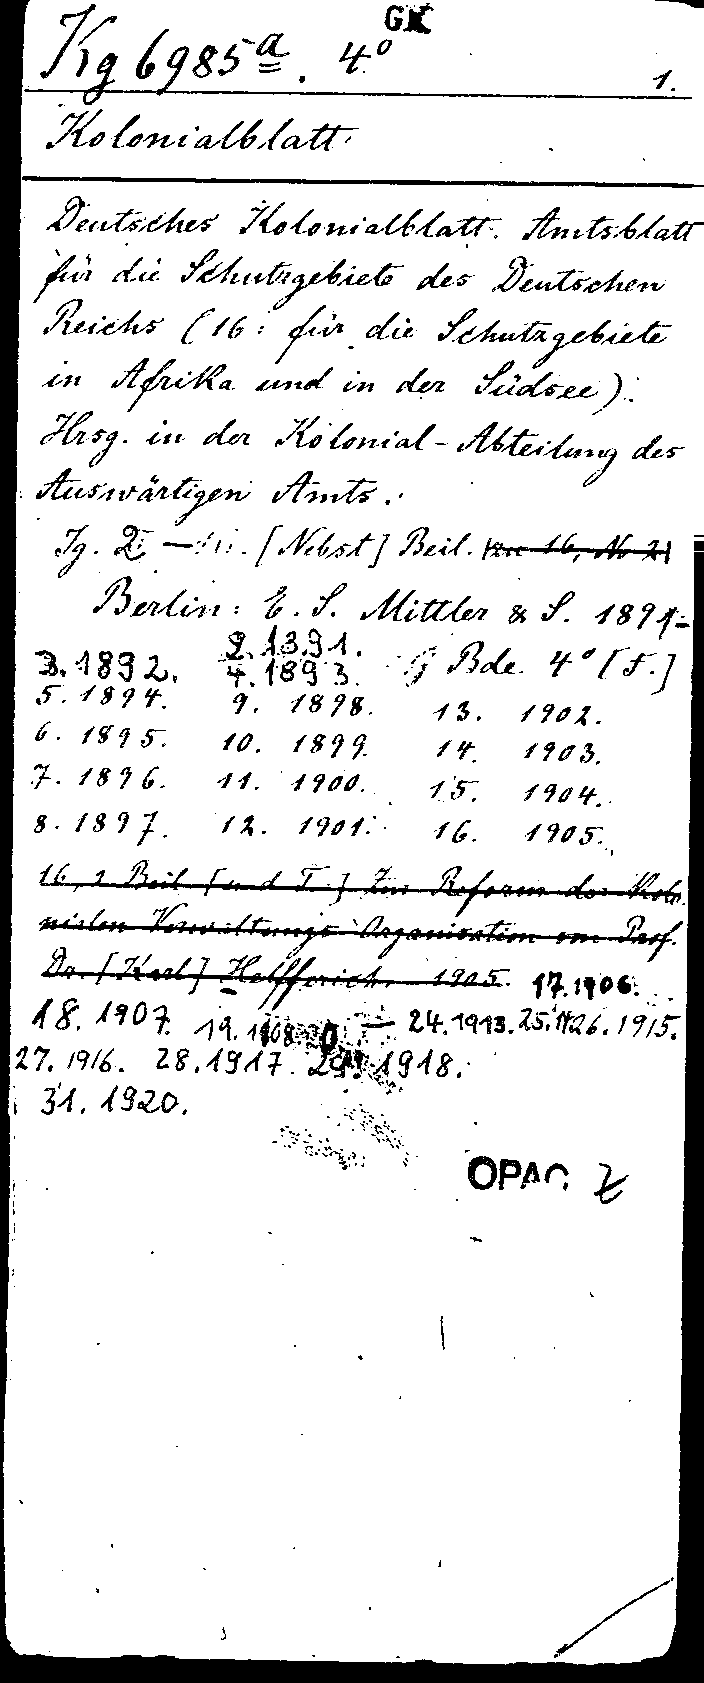 GK
Kg 6985a. 4°
1.
Kolonialblatt.
Deutsches Kolonialblatt. Amtsblatt
für die Schutzgebiete des Deutschen
Reichs (16: für die Schutzgebiete
in Afrika und in der Südsee).
Hrsg. in der Kolonial-Abteilung des
Auswärtigen Amts.
Jg. 2 — [Nebst] Beil. [zu 16, No 2]
Berlin: E. S. Mittler & S. 1891-
2. 1891.
3. 1892. 4. 1893. Bde. 4° [F.]
5. 1894. 9. 1898. 13. 1902.
6. 1895. 10. 1899. 14. 1903.
7. 1896. 11. 1900. 15. 1904.
8. 1897. 12. 1901. 16. 1905.
16, 2 Beil [u d T.] Zur Reform der Kolo-
nialen Verwaltungs-Organisation von Prof.
Dr. [Karl] Helfferich. 1905. 17. 1906.
18. 1907. 19. 1908 — 24. 1913. 25. 26. 1915.
27. 1916. 28. 1917. 29. 1918.
31. 1920.
OPAC